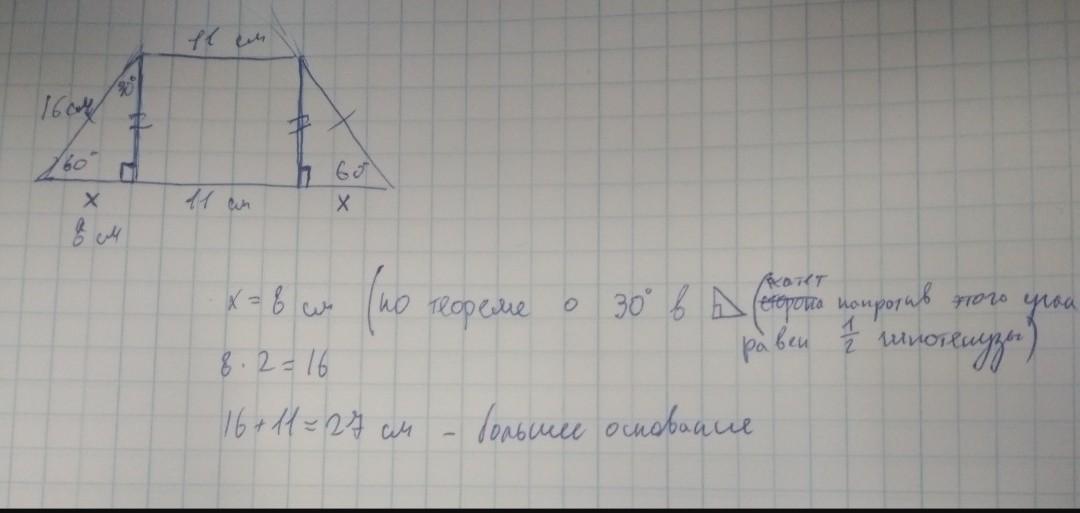 11 см
16 см
30°
60°
60°
x
11 см
x
8 см
x = 8 см (по теореме о 30° в (катет
сторона напротив этого угла
равен 1/2 гипотенузы)
8 · 2 = 16
16 + 11 = 27 см - большее основание